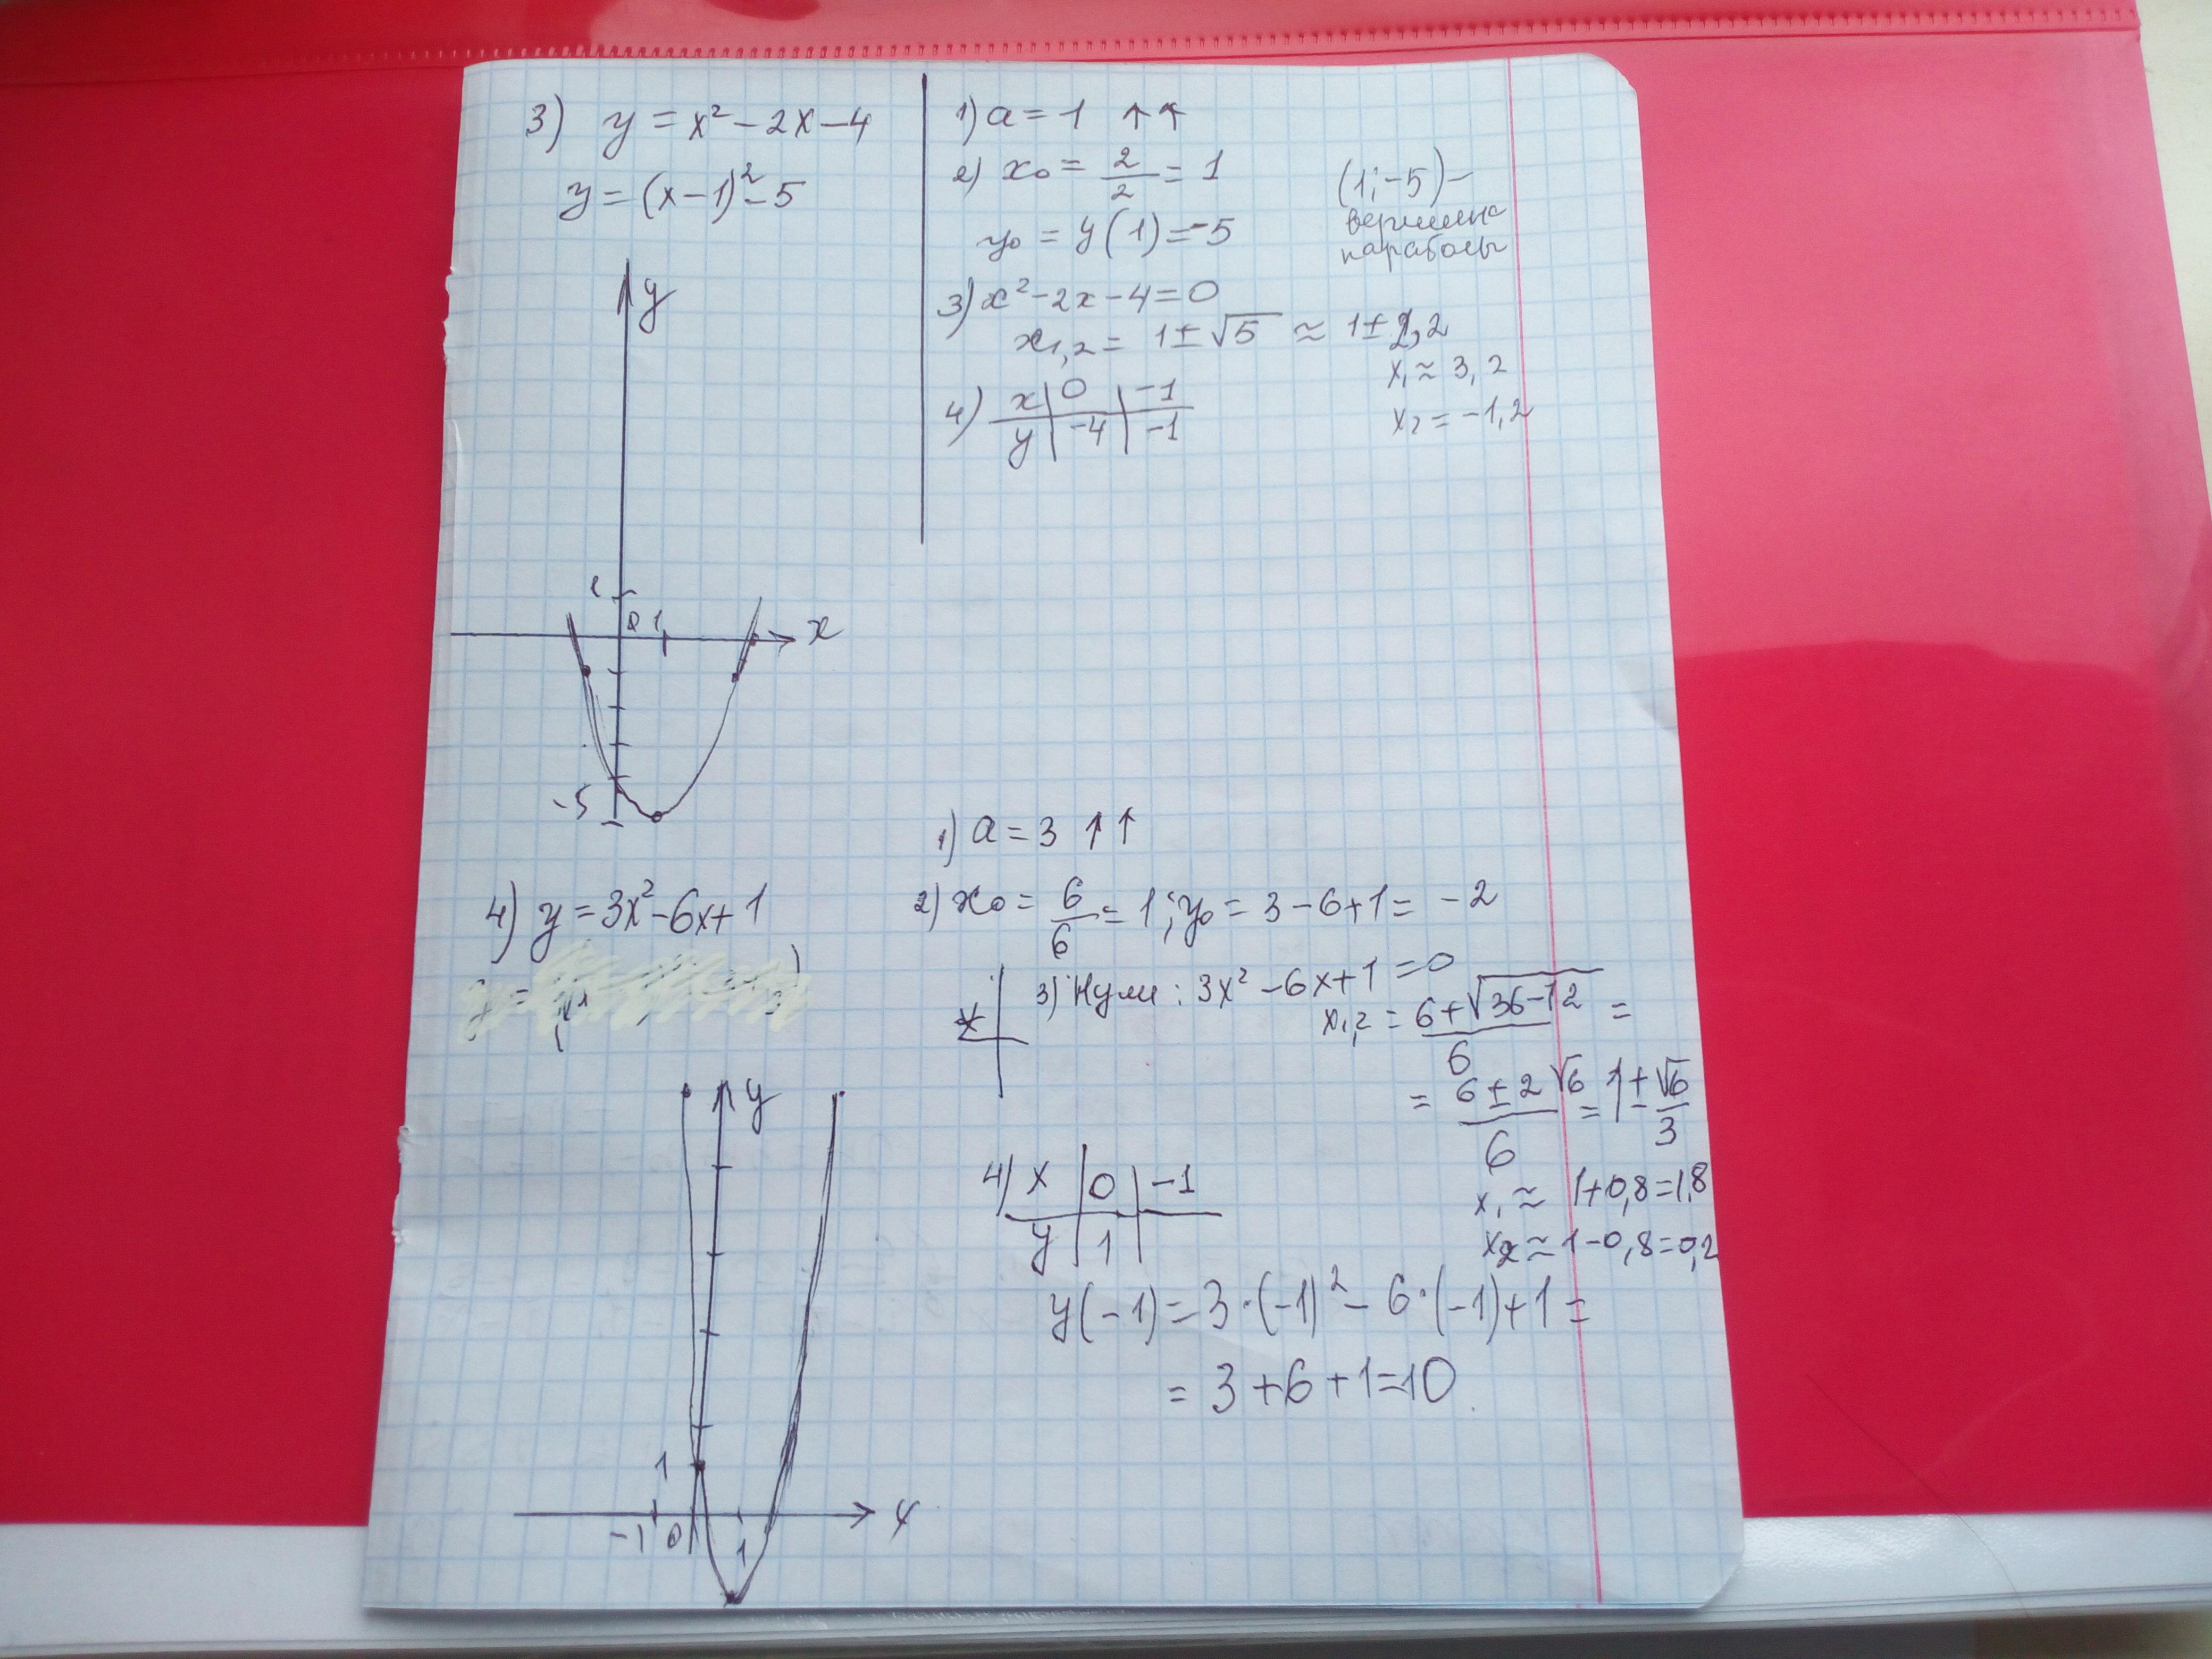 3) y = x² - 2x - 4
y = (x - 1)² - 5
1) a = 1 ↑↑
2) x₀ = 2/2 = 1
y₀ = y(1) = -5
(1; -5) -
вершина
параболы
3) x² - 2x - 4 = 0
x₁,₂ = 1 ± √5 ≈ 1 ± 2,2
x₁ ≈ 3,2
x₂ = -1,2
4) x | 0 | -1
y | -4 | -1
y
1
0 1
x
-5
4) y = 3x² - 6x + 1
1) a = 3 ↑↑
2) x₀ = 6/6 = 1; y₀ = 3 - 6 + 1 = -2
x
3) Нули: 3x² - 6x + 1 = 0
x₁,₂ = (6 + √(36 - 12))/6 =
= (6 ± 2√6)/6 = 1 ± √6/3
x₁ ≈ 1 + 0,8 = 1,8
x₂ ≈ 1 - 0,8 = 0,2
4) x | 0 | -1
y | 1 |
y(-1) = 3·(-1)² - 6·(-1) + 1 =
= 3 + 6 + 1 = 10
y
1
-1 0 1
x